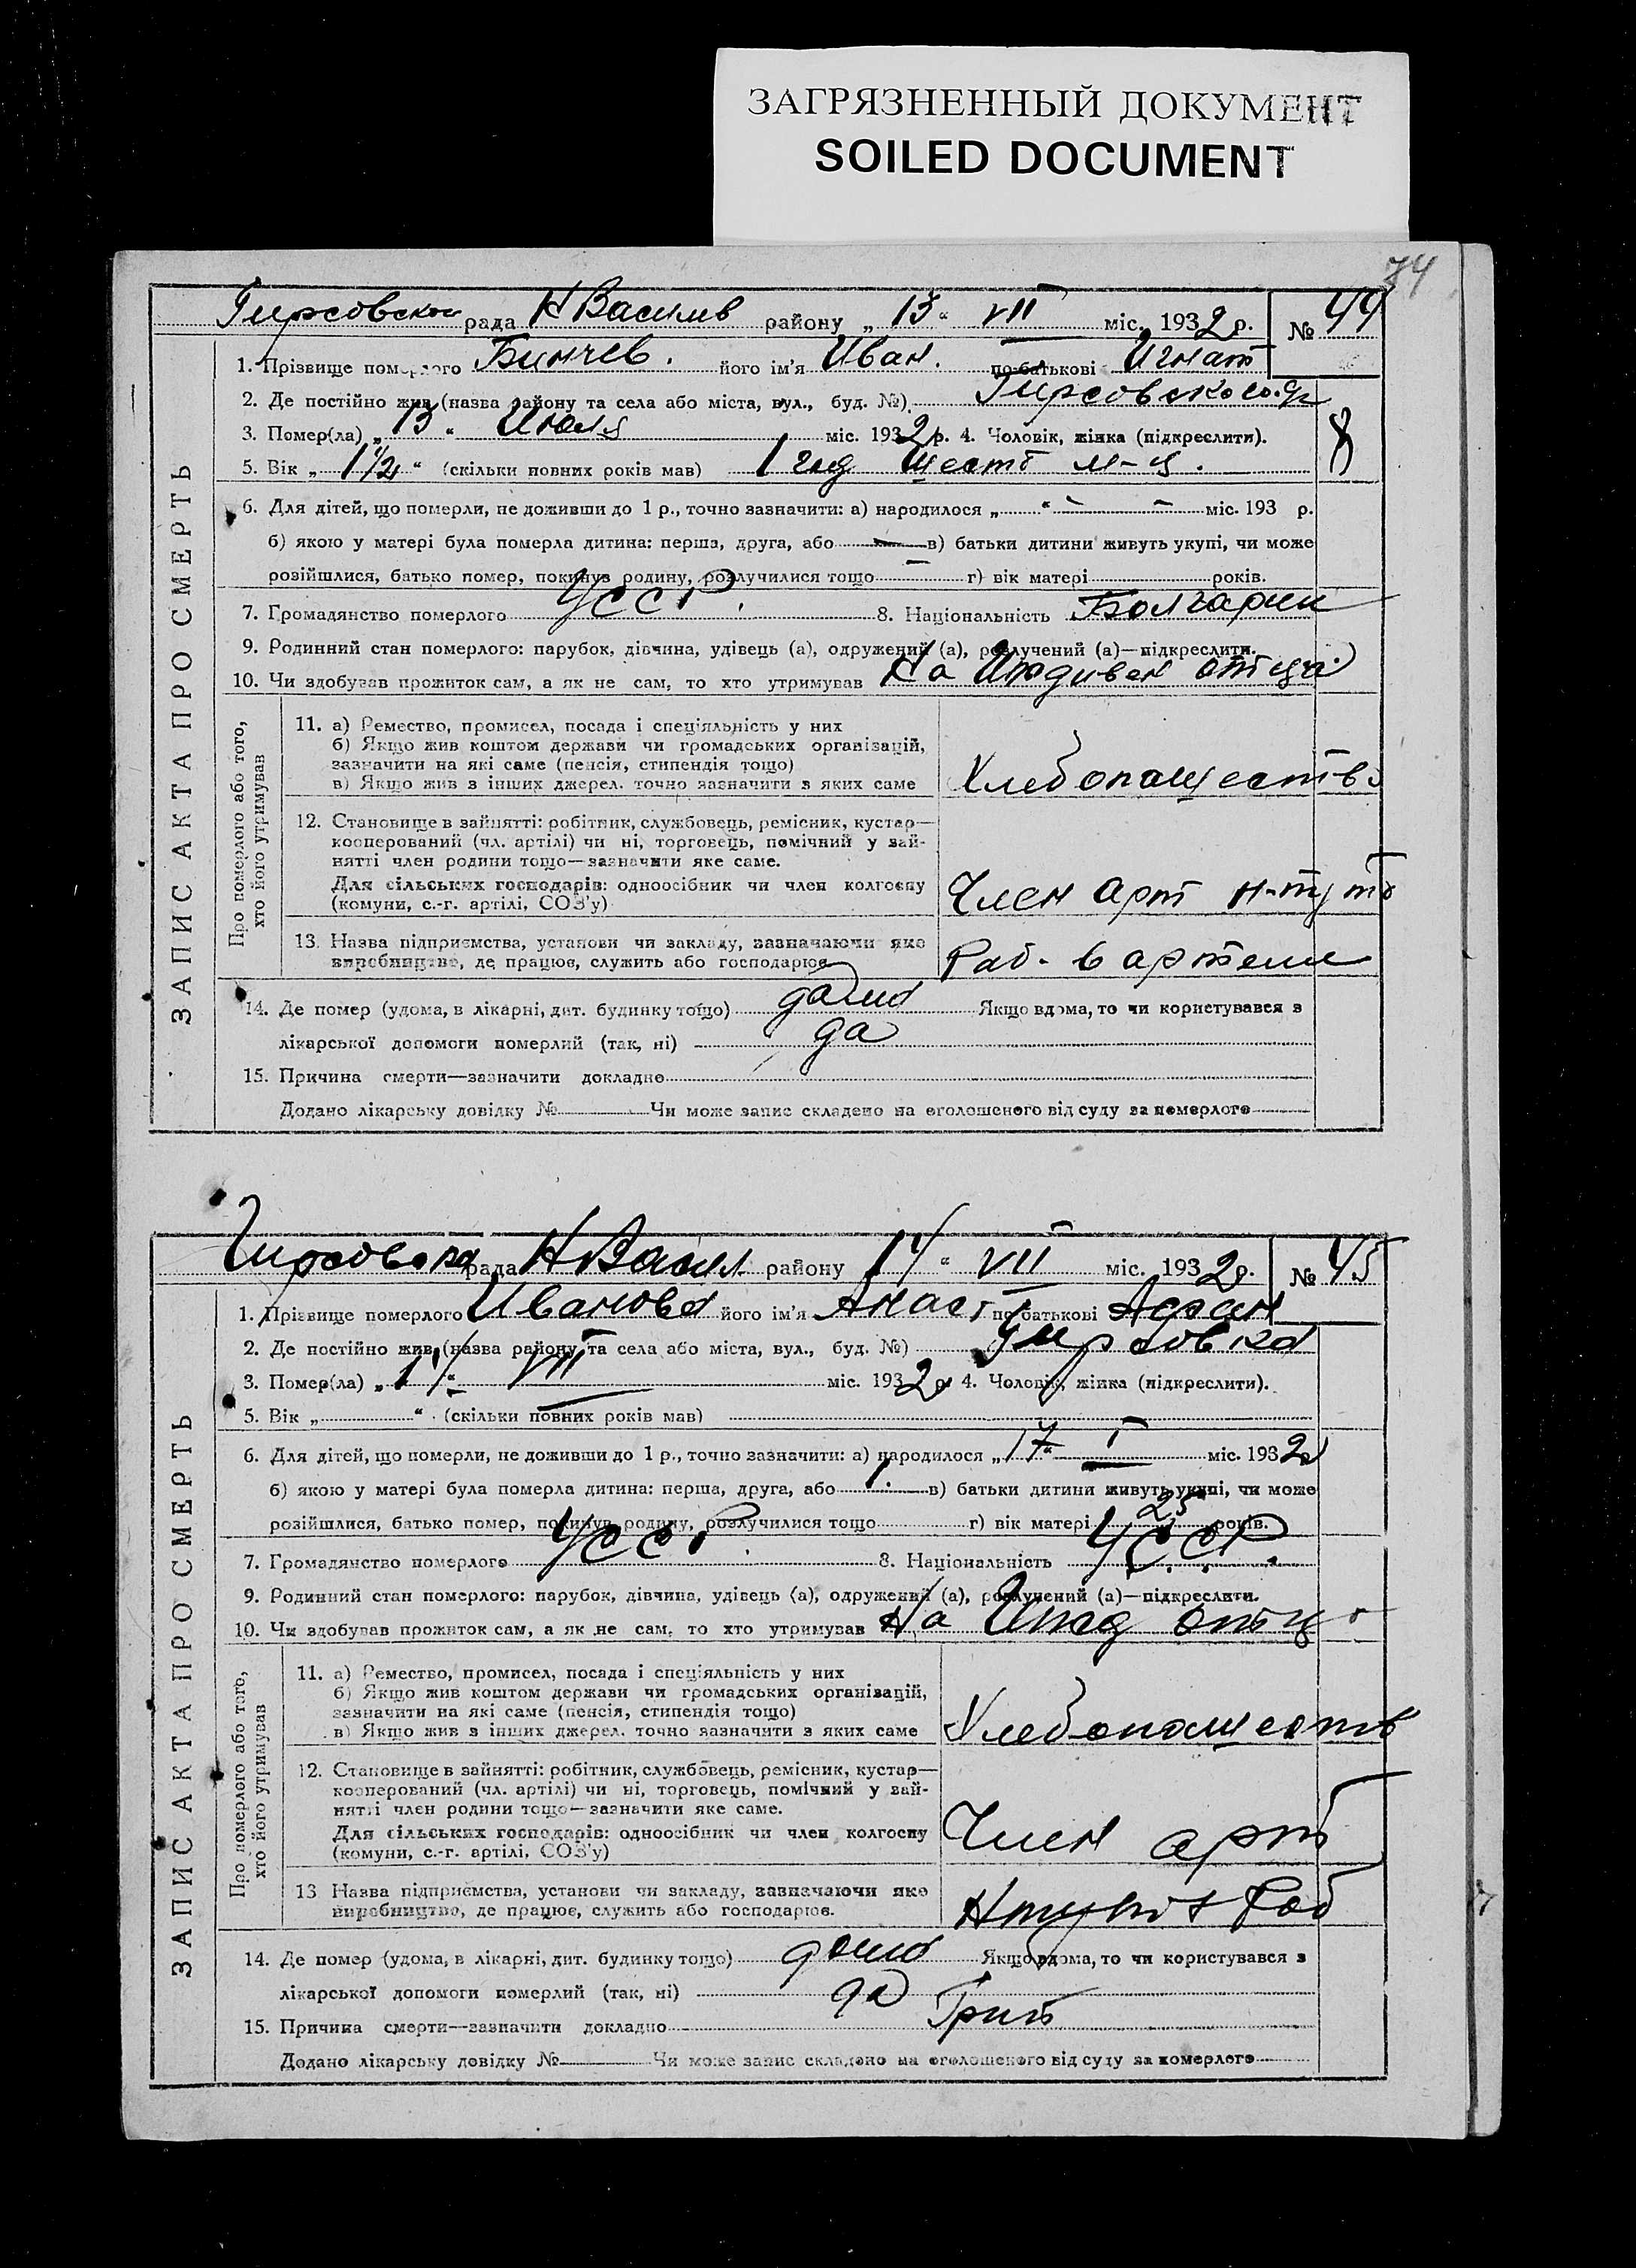 ЗАГРЯЗНЕННЫЙ ДОКУМЕНТ
SOILED DOCUMENT
74
ЗАПИС АКТА ПРО СМЕРТЬ
Гирсовская рада Н Васильв району „ 13 “ VII міс. 1932 р. № 44
1. Прізвище померлого Бинчев. його ім'я Иван. по батькові Игнат
2. Де постійно жив (назва району та села або міста, вул., буд. №)
3. Помер(ла) „ 13 “ Июля міс. 1932 р. 4. Чоловік, жінка (підкреслити).
5. Вік „ 1 1/2 “ (скільки повних років мав) 1 год шесть м-ц.
6. Для дітей, що померли, не доживши до 1 р., точно зазначити: а) народилося „ “ – – міс. 193 р.
б) якою у матері була померла дитина: перша, друга, або — в) батьки дитини живуть укупі, чи може
розійшлися, батько помер, покинув родину, розлучилися тощо – г) вік матері років.
7. Громадянство померлого УССР. 8. Національність Болгарин
9. Родинний стан померлого: парубок, дівчина, удівець (а), одружений (а), розлучений (а)—підкреслити.
10. Чи здобував прожиток сам, а як не сам, то хто утримував На Иждивен отца
Про померлого або того,
хто його утримував
11. а) Ремество, промисел, посада і спеціяльність у них
б) Якщо жив коштом держави чи громадських організацій,
зазначити на які саме (пенсія, стипендія тощо)
в) Якщо жив з інших джерел. точно зазначити з яких саме Хлебопашество
12. Становище в зайнятті: робітник, службовець, ремісник, кустар—
кооперований (чл. артілі) чи ні, торговець, помічний у зай-
нятті член родини тощо—зазначити яке саме.
Для сільських господарів: одноосібник чи член колгоспу
(комуни, с.-г. артілі, СОЗ'у) Член арт
13. Назва підприємства, установи чи закладу, зазначаючи яке
виробництво, де працює, служить або господарює Раб. в артели
14. Де помер (удома, в лікарні, дит. будинку тощо) дома Якщо вдома, то чи користувався з
лікарської допомоги померлий (так, ні) да
15. Причина смерти—зазначити докладно
Додано лікарську довідку № Чи може запис складено на оголошеного від суду за померлого
ЗАПИС АКТА ПРО СМЕРТЬ
Гирсовска рада Н Васил району 14 “ VII міс. 1932 р. № 45
1. Прізвище померлого Иванова його ім'я Анаст по батькові
2. Де постійно жив (назва району та села або міста, вул., буд. №) Гирсовка
3. Помер(ла) „ 14 “ VII міс. 1932 р. 4. Чоловік, жінка (підкреслити).
5. Вік „ “ (скільки повних років мав)
6. Для дітей, що померли, не доживши до 1 р., точно зазначити: а) народилося „ 17 “ I міс. 1932
б) якою у матері була померла дитина: перша, друга, або 1. в) батьки дитини живуть укупі, чи може
розійшлися, батько помер, покинув родину, розлучилися тощо г) вік матері 25 років.
7. Громадянство померлого УССР. 8. Національність УССР.
9. Родинний стан померлого: парубок, дівчина, удівець (а), одружений (а), розлучений (а)—підкреслити.
10. Чи здобував прожиток сам, а як не сам, то хто утримував На Ижд отца
Про померлого або того,
хто його утримував
11. а) Ремество, промисел, посада і спеціяльність у них
б) Якщо жив коштом держави чи громадських організацій,
зазначити на які саме (пенсія, стипендія тощо)
в) Якщо жив з інших джерел. точно зазначити з яких саме Хлебопашеств
12. Становище в зайнятті: робітник, службовець, ремісник, кустар—
кооперований (чл. артілі) чи ні, торговець, помічний у зай-
нятті член родини тощо—зазначити яке саме.
Для сільських господарів: одноосібник чи член колгоспу
(комуни, с.-г. артілі, СОЗ'у) Член арт
13 Назва підприємства, установи чи закладу, зазначаючи яке
виробництво, де працює, служить або господарює. Раб
14. Де помер (удома, в лікарні, дит. будинку тощо) дома Якщо вдома, то чи користувався з
лікарської допомоги померлий (так, ні) да
15. Причина смерти—зазначити докладно Грип
Додано лікарську довідку № Чи може запис складено на оголошеного від суду за померлого